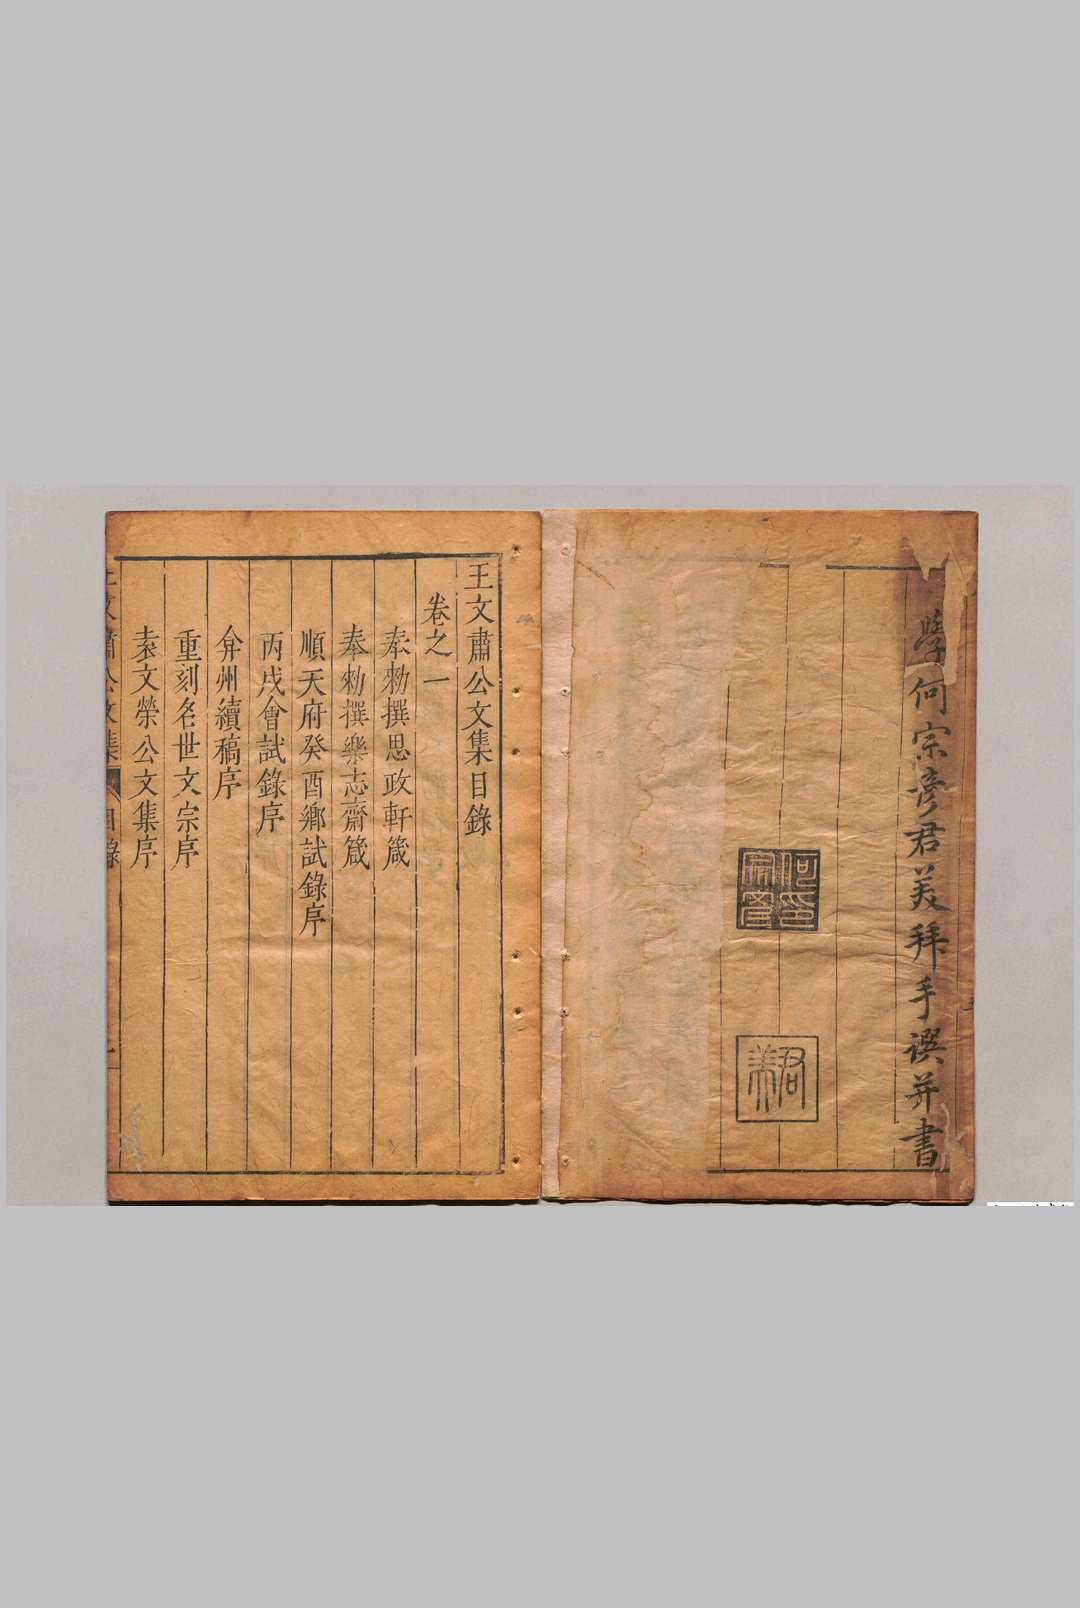 學何宗彥君美拜手譔并書
何宗彥印
君美
王文肅公文集目錄
卷之一
奉勑撰思政軒箴
奉勑撰樂志齋箴
順天府癸酉鄉試錄序
丙戌會試錄序
弇州續稿序
重刻名世文宗序
袁文榮公文集序
王文肅公文集 目錄 一